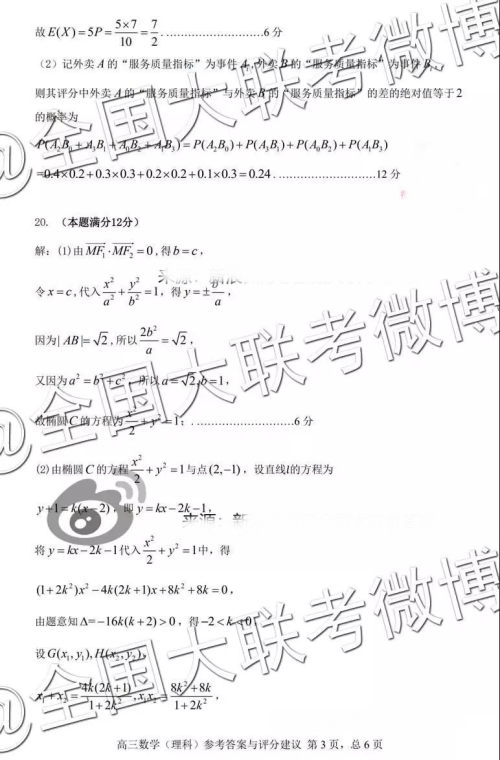 故E(X)=5P=\frac{5×7}{10}=\frac{7}{2}. ……………………6分
（2）记外卖A的“服务质量指标”为事件A，外卖B的“服务质量指标”为事件B，
则其评分中外卖A的“服务质量指标”与外卖B的“服务质量指标”的差的绝对值等于2
的概率为
P(A_2B_0+A_3B_1+A_0B_2+A_1B_3)=P(A_2B_0)+P(A_3B_1)+P(A_0B_2)+P(A_1B_3)
=0.4×0.2+0.3×0.3+0.2×0.2+0.1×0.3=0.24. ……………………12分
20. （本题满分12分）
解：(1)由\overrightarrow{MF_1}·\overrightarrow{MF_2}=0,得b=c，
令x=c,代入\frac{x^2}{a^2}+\frac{y^2}{b^2}=1，得y=±\frac{b^2}{a}，
因为|AB|=√2,所以\frac{2b^2}{a}=√2，
又因为a^2=b^2+c^2，所以a=√2,b=1，
故椭圆C的方程为\frac{x^2}{2}+y^2=1；……………………6分
(2)由椭圆C的方程\frac{x^2}{2}+y^2=1与点(2,-1)，设直线l的方程为
y+1=k(x-2)，即y=kx-2k-1，
将y=kx-2k-1代入\frac{x^2}{2}+y^2=1中，得
(1+2k^2)x^2-4k(2k+1)x+8k^2+8k=0，
由题意知Δ=-16k(k+2)>0，得-2<k<0，
设G(x_1,y_1),H(x_2,y_2)，
x_1+x_2=\frac{4k(2k+1)}{1+2k^2},x_1x_2=\frac{8k^2+8k}{1+2k^2}，
高三数学（理科）参考答案与评分建议 第3页，总6页
@全国大联考微博
@全国大联考微博
@全国大联考微博